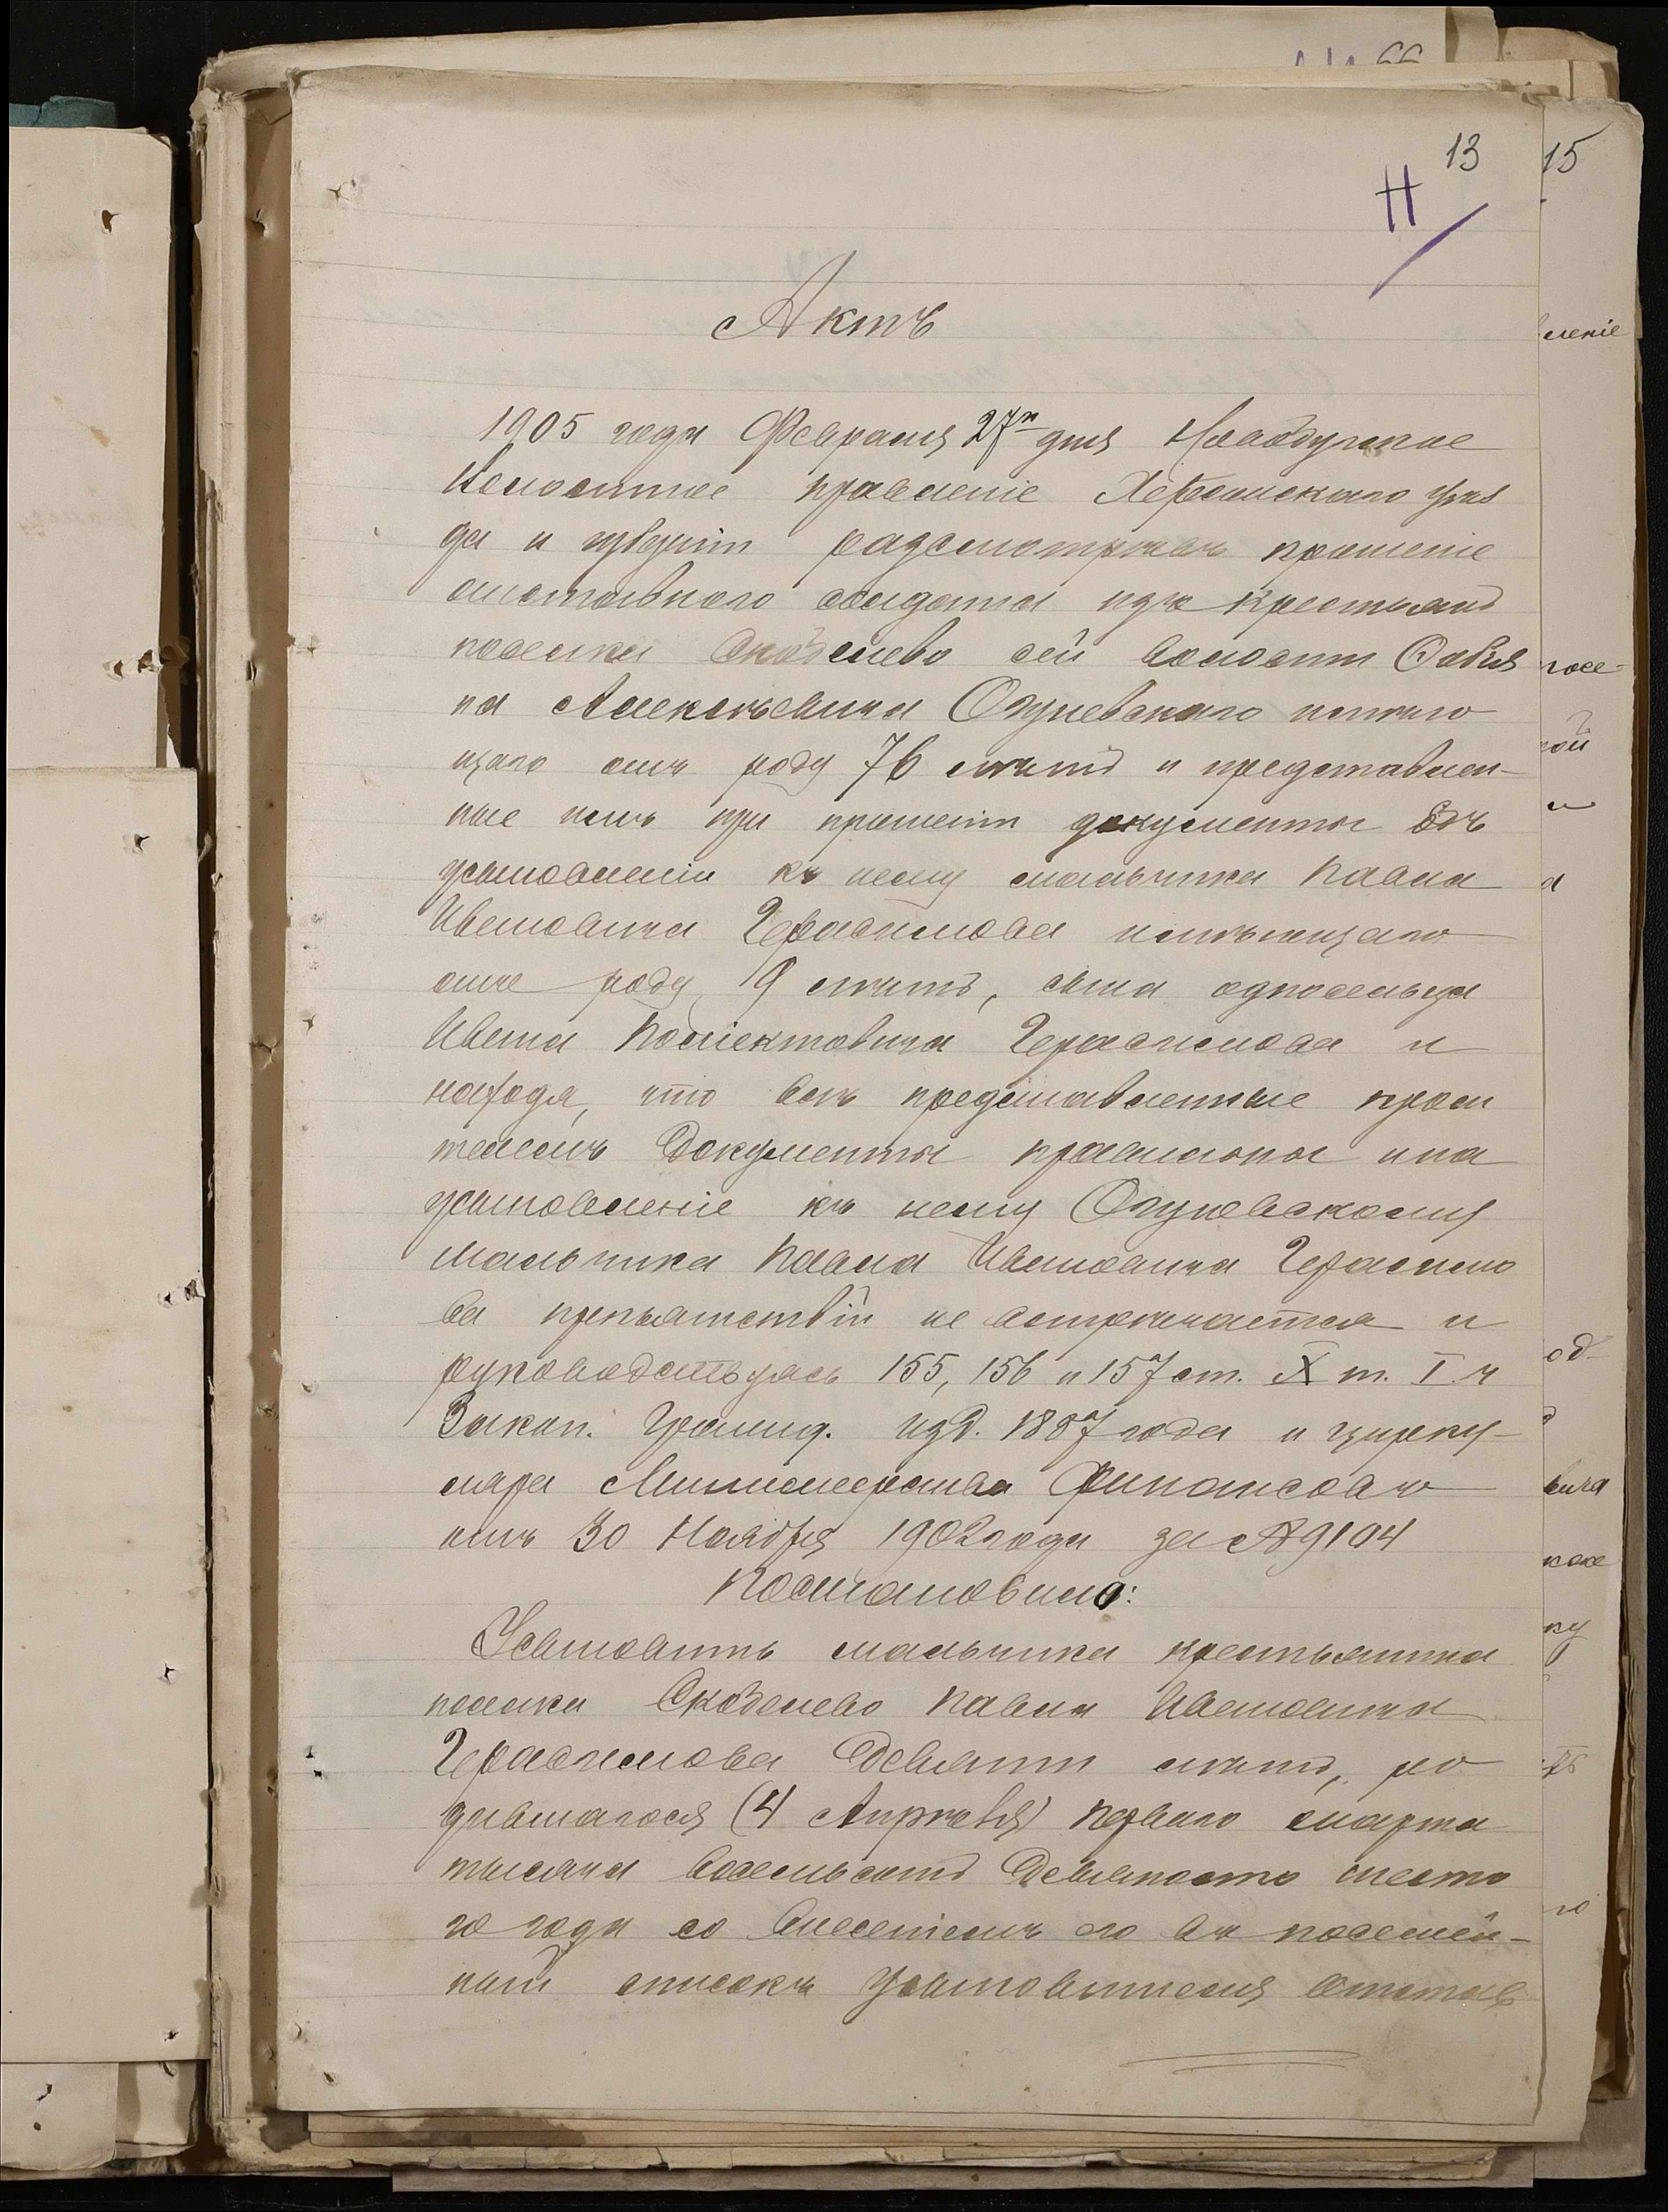 13
11
Актъ
1905 года Февраля 27го дня
Волостное правленіе Херсонскаго уѣз
да и губерніи разсмотрѣвъ прошеніе
отставного солдата изъ крестьянъ
поселка Скобелево сей волости
на Алексѣевича Огуневскаго имѣю
щаго отъ роду 76 лѣтъ и представлен-
ные имъ при прошеніи документы объ
усыновленіи къ нему мальчика Павла
Ивановича Герасимова имѣющаго
отъ роду 9 лѣтъ, сына односельца
Ивана Герасимова и
находя, что всѣ представленные проси
телемъ документы правильны и на
усыновленіе къ нему Огуневскому
мальчика Павла Ивановича Герасимо
ва препятствій не встрѣчается и
руководствуясь 155, 156 и 157 ст. X т. I ч
Закон. Гражд. изд. 1887 года и цирку-
ляра Министерства Финансовъ
отъ 30 Ноября 1902 года за № 9104
Постановило:
Усыновить мальчика крестьянина
поселка Скобелево Павла Ивановича
Герасимова девяти лѣтъ, ро
дившагося (4 Апрѣля) перваго марта
тысяча восемьсотъ девяносто шесто
го года со внесеніемъ его въ посемей-
ный списокъ усыновителя отстав
15
леніе
посе-
кой
и
а
од
вича
ку
го